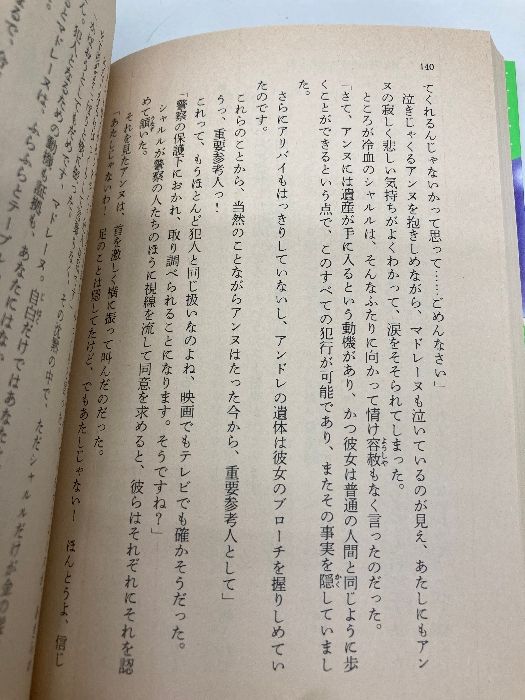 140
てくれるんじゃないかって思って……ごめんなさい」
泣きじゃくるアンヌを抱きしめながら、マドレーヌも泣いているのが見え、あたしにもアン
ヌの寂しく悲しい気持ちがよくわかって、涙をそそられてしまった。
ところが冷血のシャルルは、そんなふたりに向かって情け容赦もなく言ったのだった。
「さて、アンヌには遺産が手に入るという動機があり、かつ彼女は普通の人間と同じように歩
くことができるという点で、このすべての犯行が可能であり、またその事実を隠していまし
た。
さらにアリバイもはっきりしていないし、アンドレの遺体は彼女のブローチを握りしめてい
たのです。
これらのことから、当然のことながらアンヌはたった今から、重要参考人として」
うっ、重要参考人っ！
これって、もうほとんど犯人と同じ扱いなのよね、映画でもテレビでも確かそうだった。
「警察の保護下におかれ、取り調べられることになります。そうですね？」
シャルルが警察の人たちのほうに視線を流して同意を求めると、彼らはそれぞれにそれを認
めて頷いた。
それを見たアンヌは、首を激しく横に振って叫んだのだった。
「あたしじゃないわ！　足のことは隠してたけど、でもあたしじゃない！　ほんとうよ、信じ
ただシャルルだけが金の
自白だけではあなた
マドレーヌは、ふらふらとテーブル